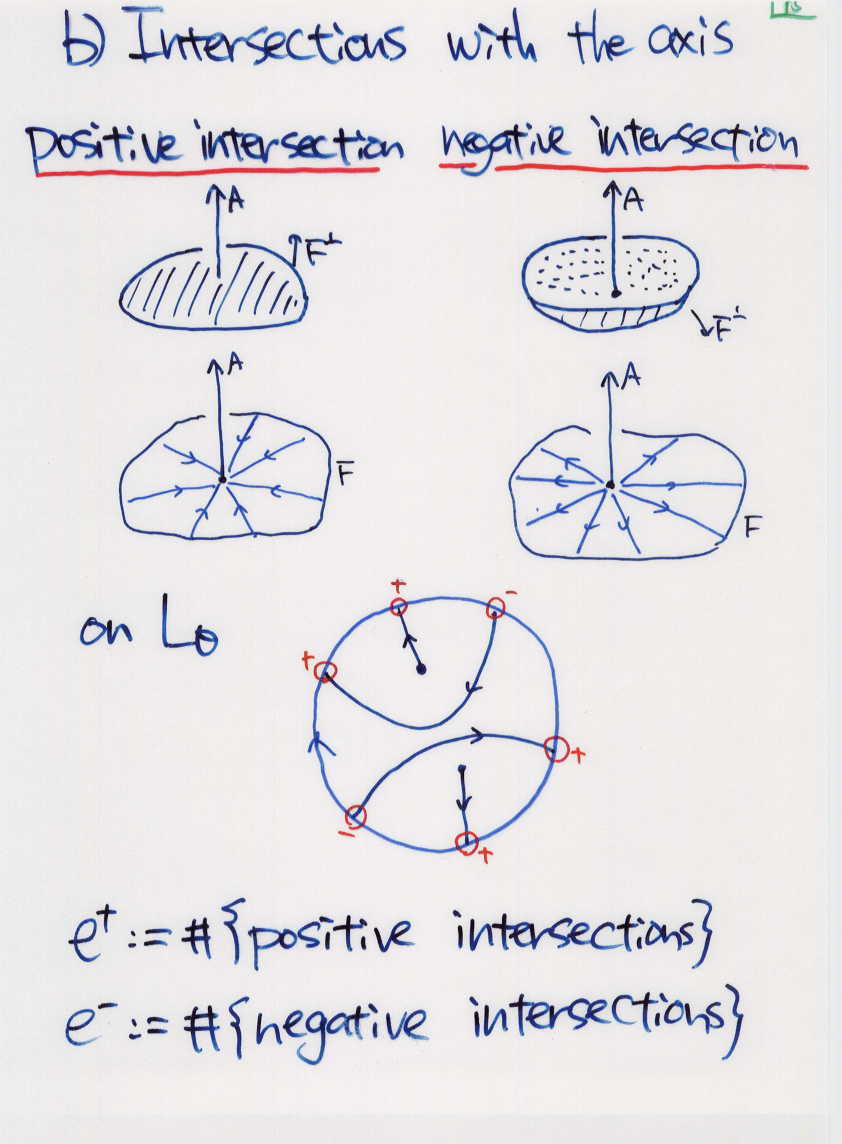 b) Intersections with the axis
positive intersection negative intersection
A A
F⊥ F⊥
A A
F F
on Lθ
+ -
+
+
-
+
e⁺ := #{positive intersections}
e⁻ := #{negative intersections}